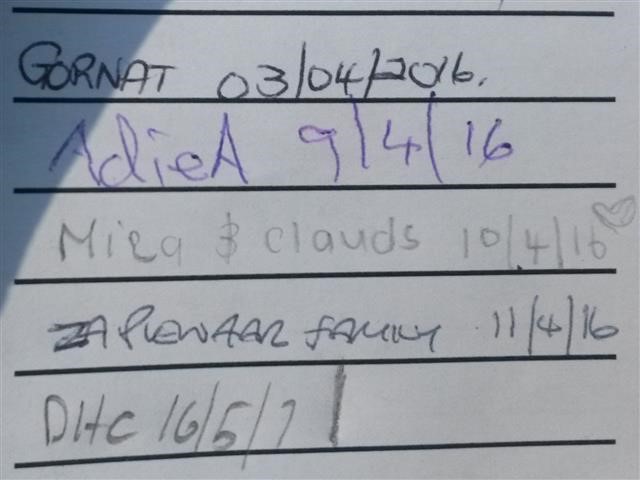 GORNAT 03/04/2016.
AdieA 9/4/16
Miza & clauds 10/4/16
FAMILY 11/4/16
DHC 16/5/7